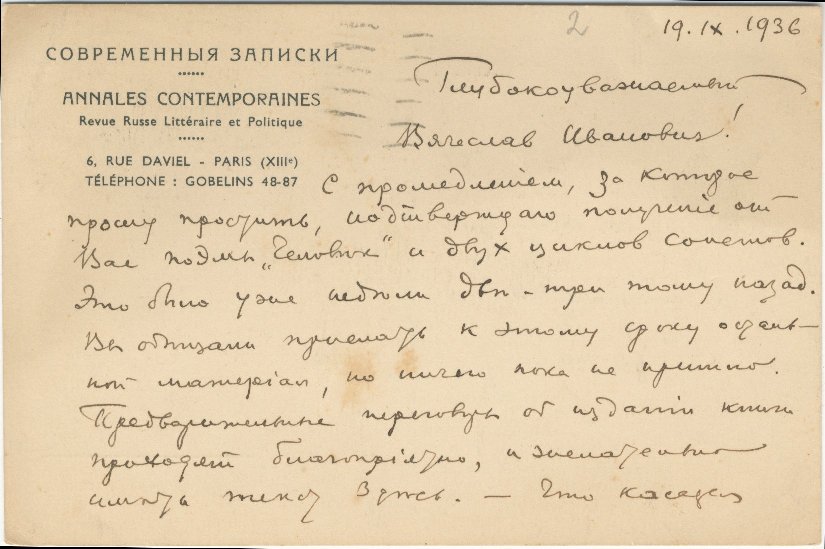 2
19.IX.1936
СОВРЕМЕННЫЯ ЗАПИСКИ
ANNALES CONTEMPORAINES
Revue Russe Littéraire et Politique
6, RUE DAVIEL - PARIS (XIIIe)
TÉLÉPHONE : GOBELINS 48-87
Глубокоуважаемый
Вячеслав Иванович!
С промедленіем, за которое
прошу простить, подтверждаю полученіе от
Вас поэмы „Человѣк“ и двух циклов сонетов.
Это было уже недѣли двѣ-три тому назад.
Вы обѣщали прислать к этому сроку осталь-
ной матеріал, но ничего пока не пришло.
Предварительные переговоры об изданіи книги
проходят благопріятно, и желательно
имѣть текст здѣсь. — Что касается